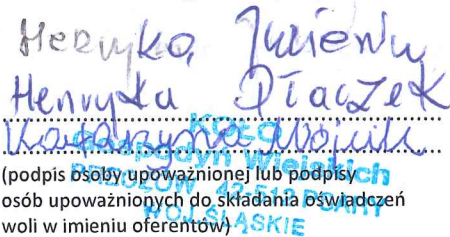 Henryka
Henryka Płaczek
Katarzyna Wójcik
KOŁO
Gospodyń Wiejskich
42-512 PSARY
WOJ. ŚLĄSKIE
(podpis osoby upoważnionej lub podpisy
osób upoważnionych do składania oświadczeń
woli w imieniu oferentów)